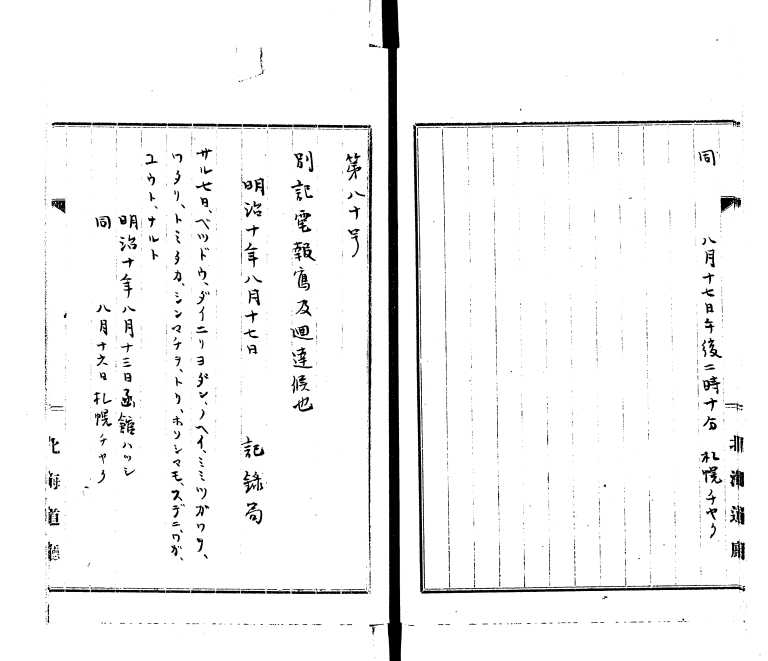 同 八月十七日午後二時十分 札幌チヤク
北海道廳
第八十号
別記電報寫及廻達候也
明治十年八月十七日 記録局
サル七日、ベツドウ、ダイニリヨダン、ノヘイ、ミミツガワヲ、
ワタリ、トミタカ、シンマチヲ、トリ、ホソシマモ、スデニ、ワガ、
ユウト、ナルト
明治十年八月十三日函館ハツシ
同 八月十六日札幌チヤク
北海道廳